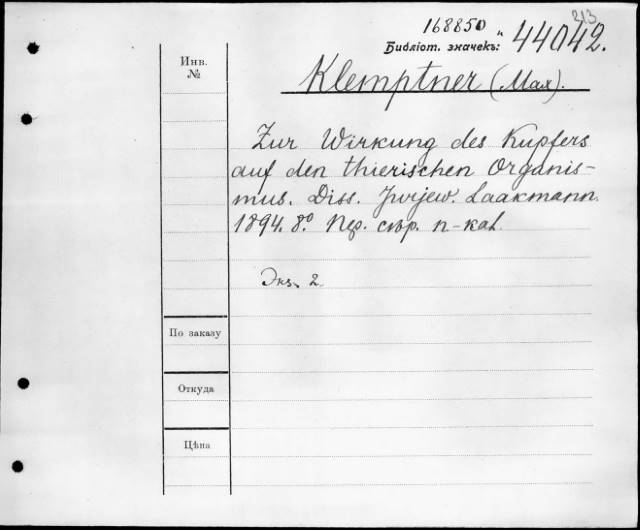 213
168850
Библіот. значекъ: 44042.
Инв.
№
Klemptner (Max).
Zur Wirkung des Kupfers
auf den thierischen Organis-
mus. Diss. Jurjew. Laakmann.
1894. 8.° Пер. сѣр. п-каl.
Экз. 2.
По заказу
Откуда
Цѣна